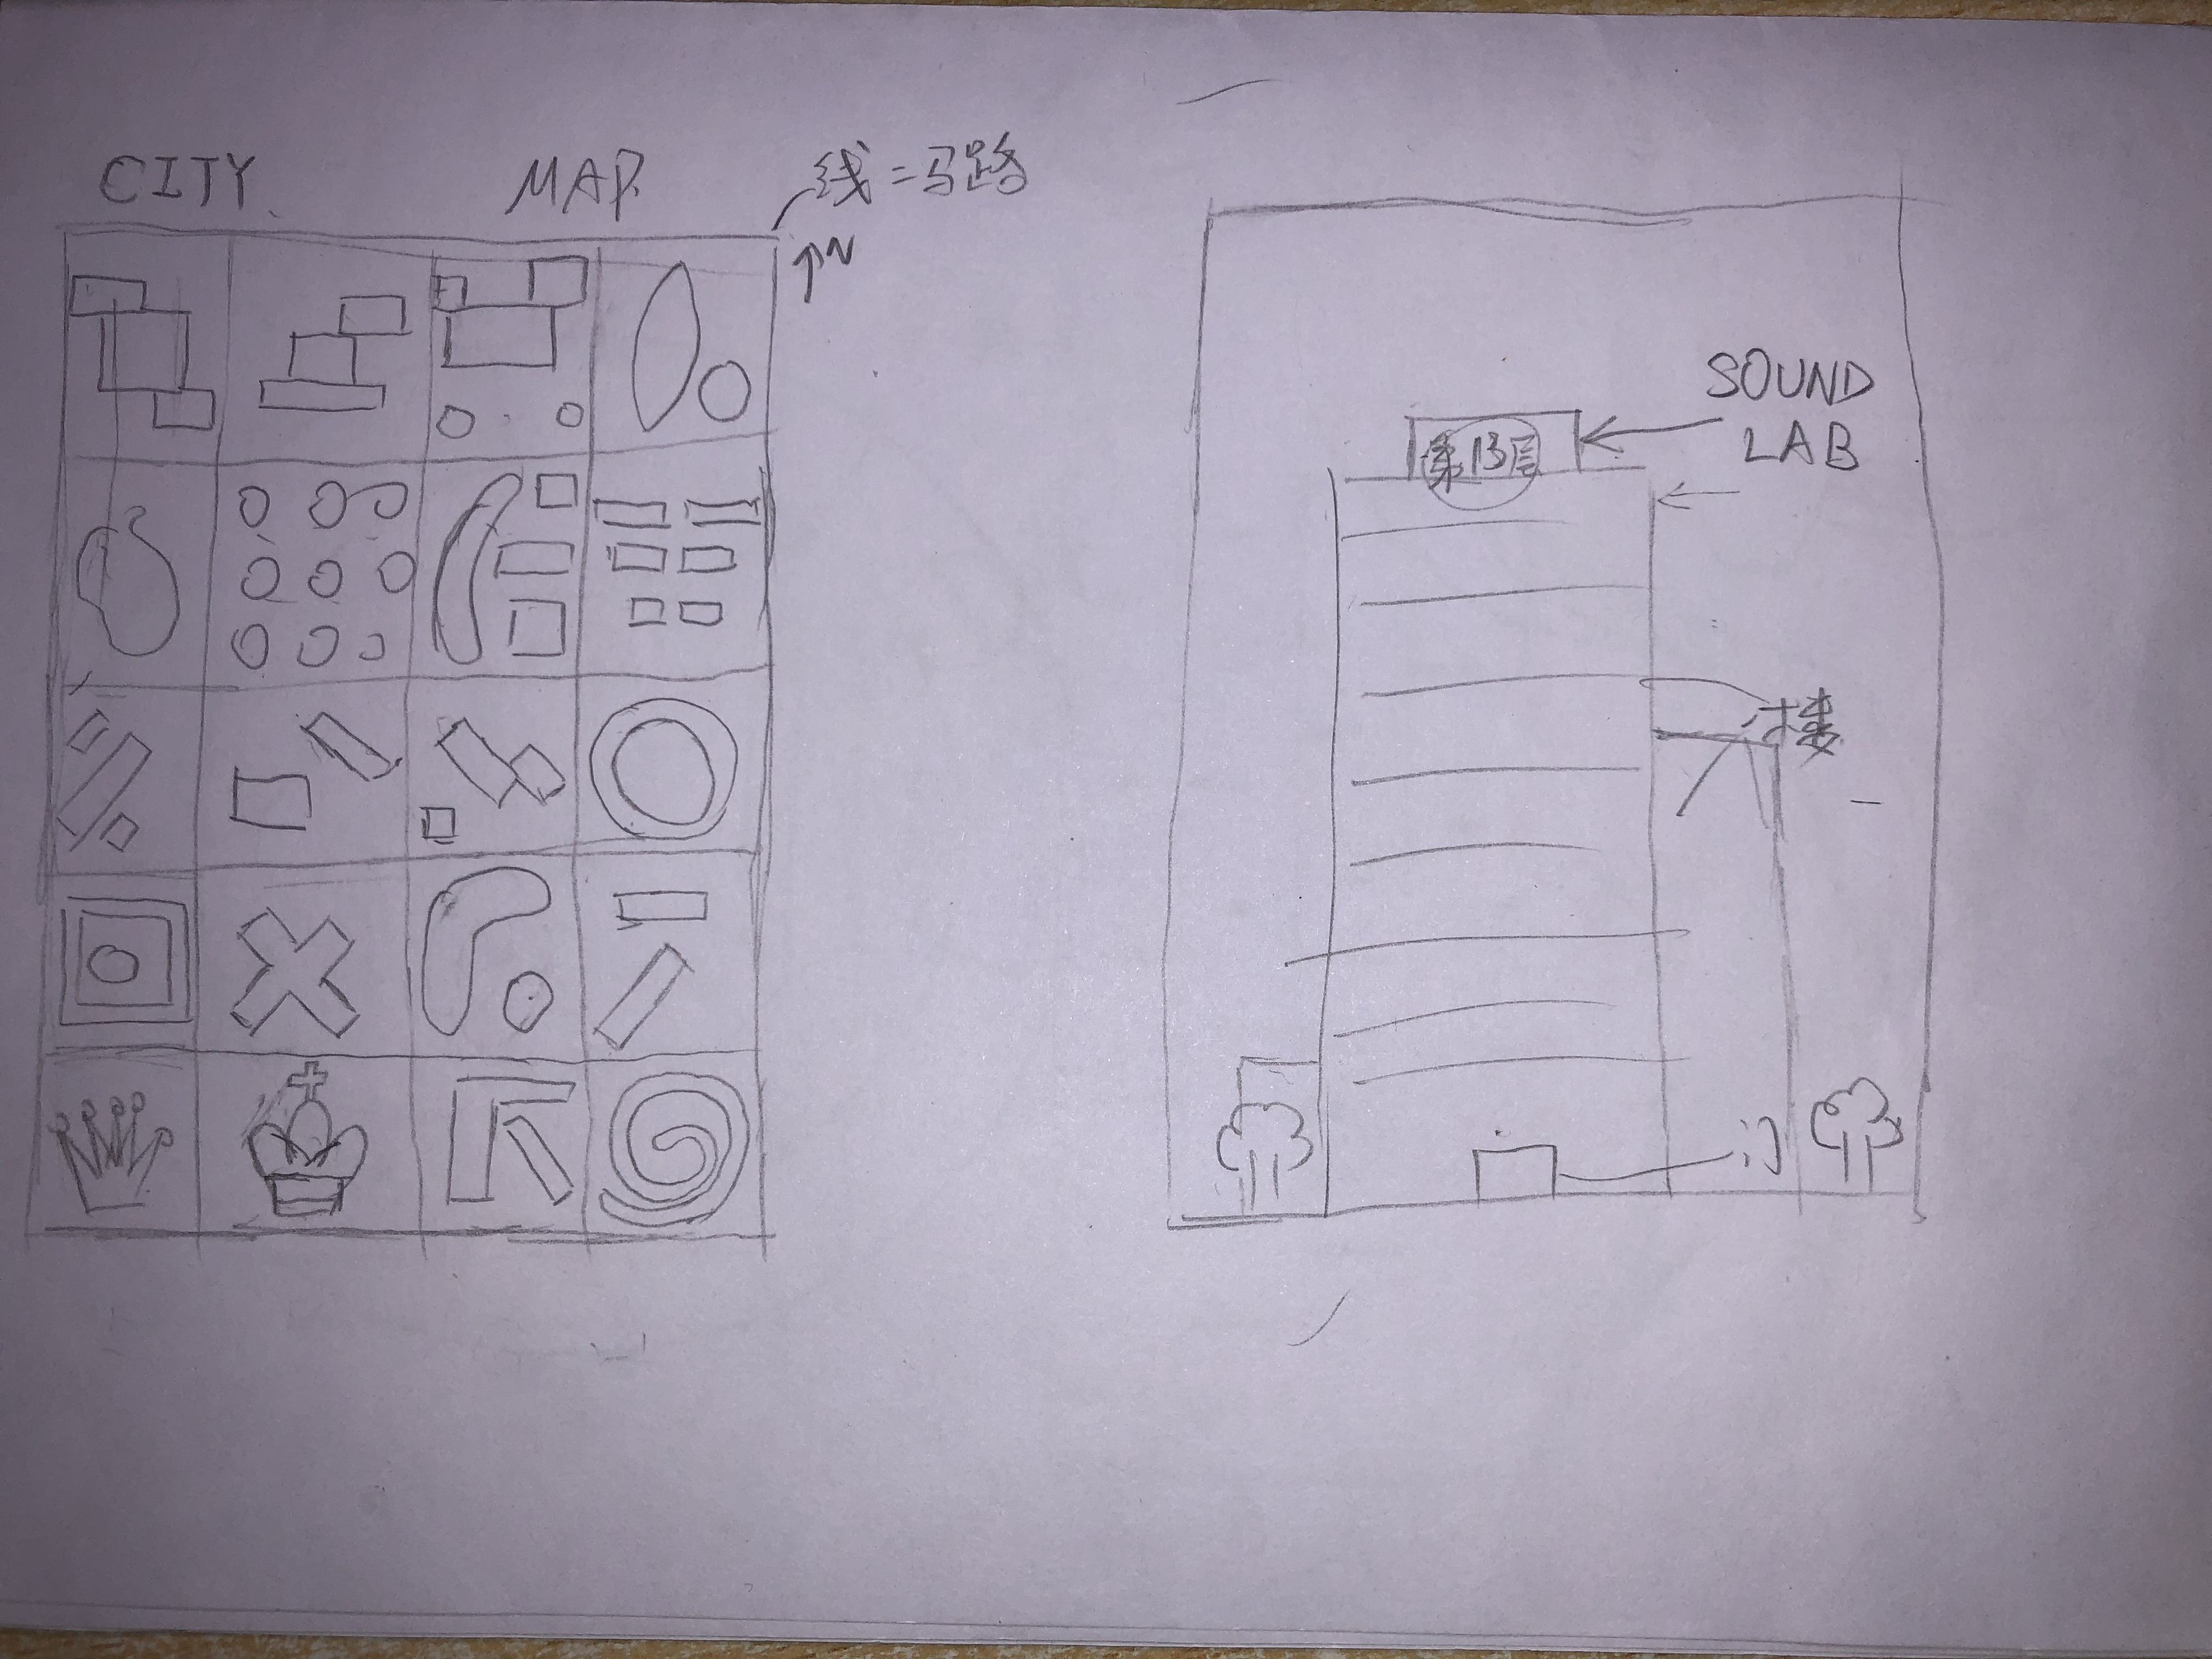 CITY MAP
线=马路
↑N
SOUND
LAB
第13层
楼
门